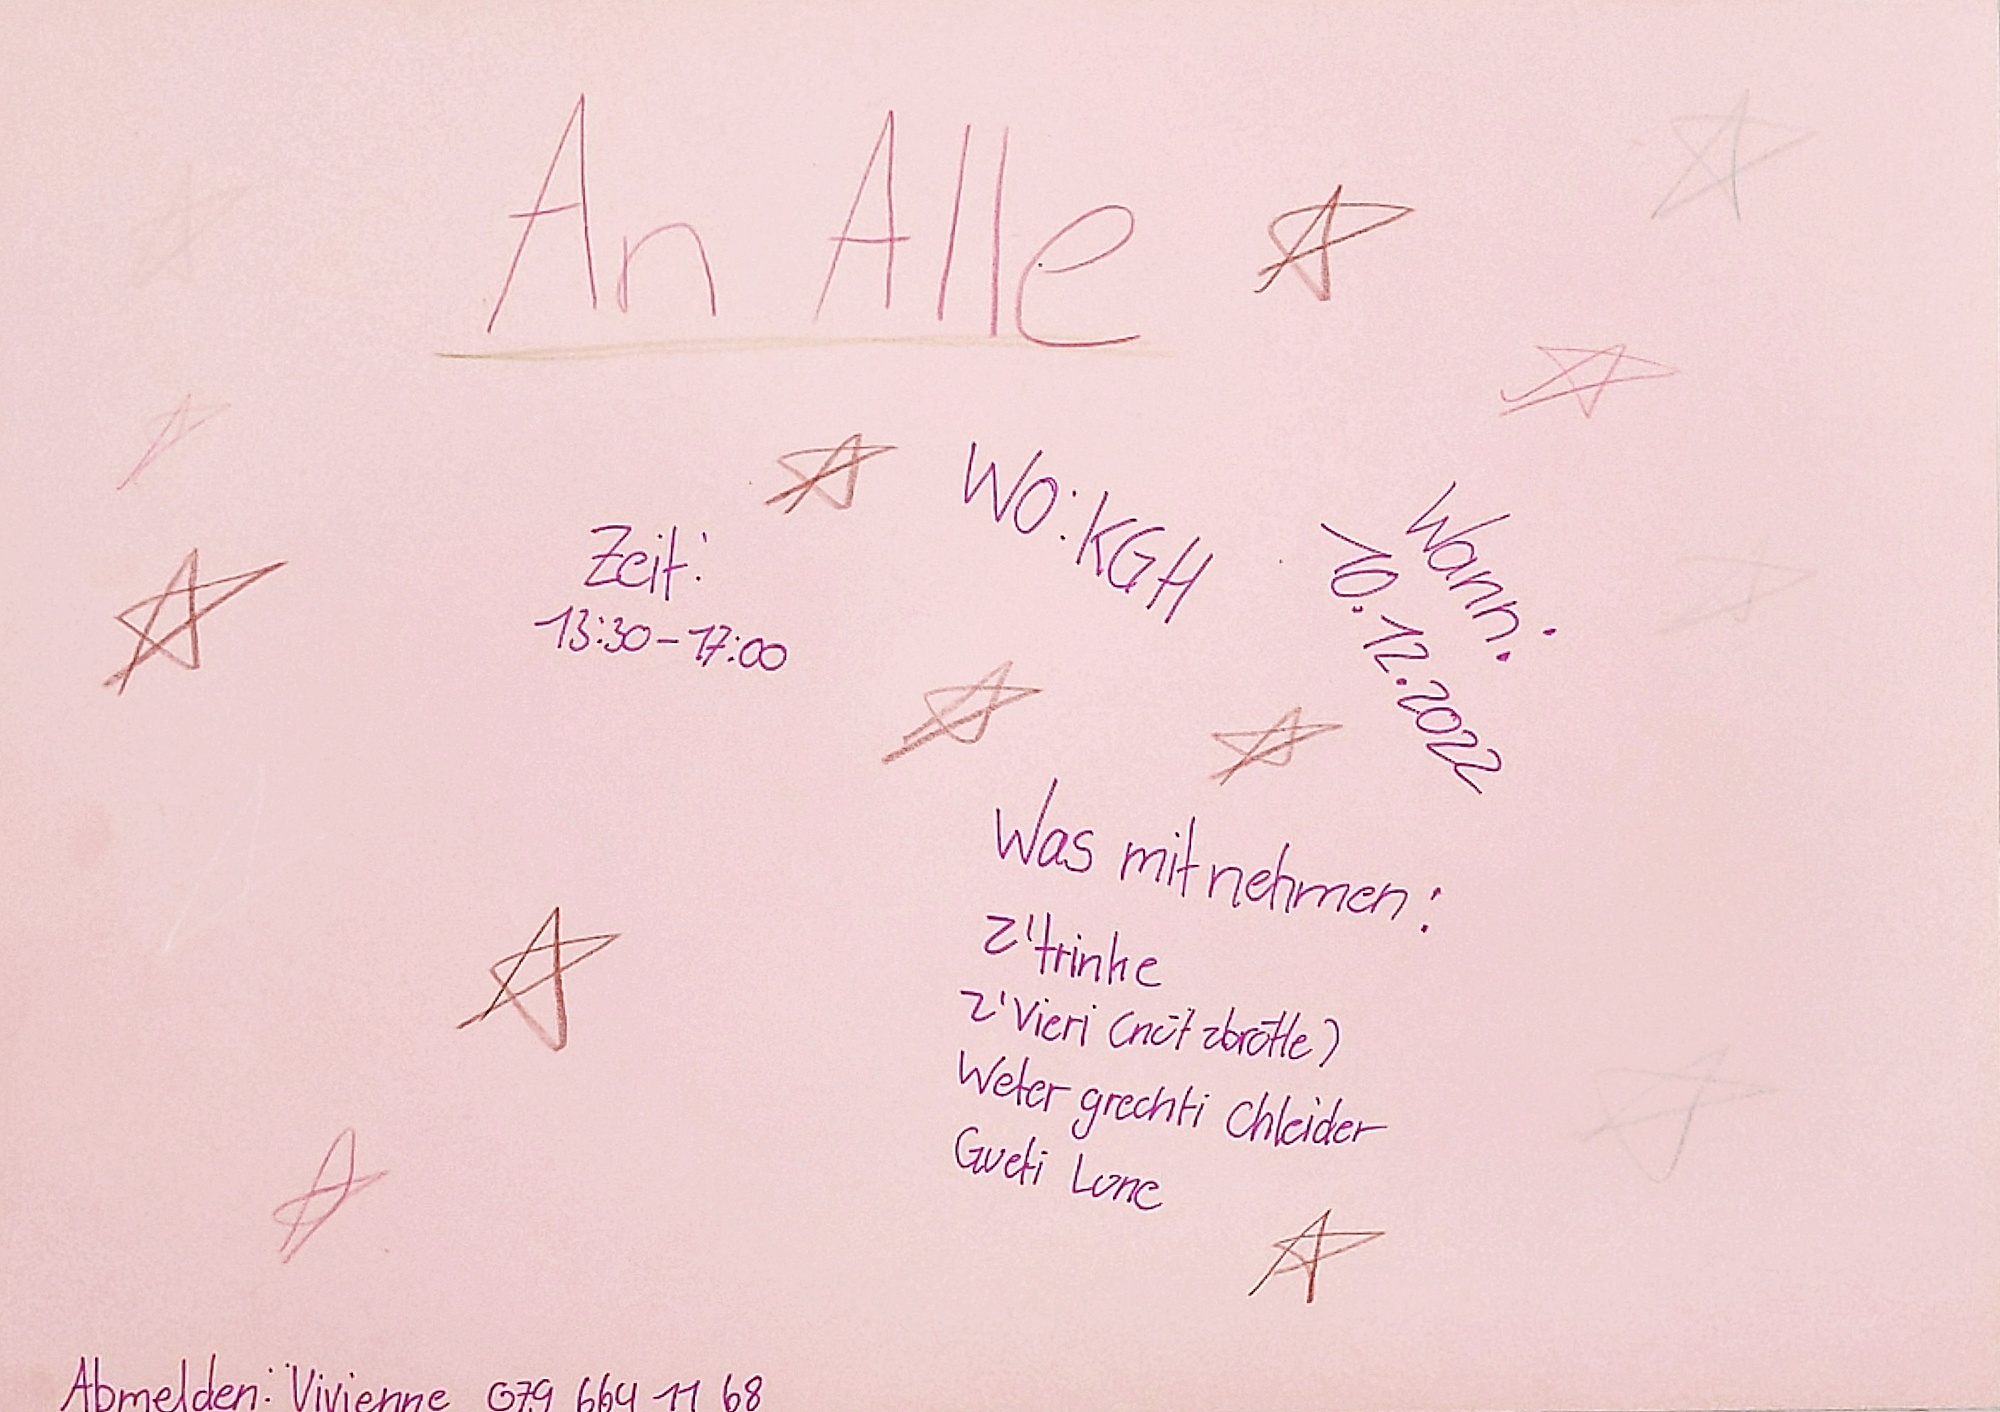 An Alle
Zeit:
13:30-17:00
Wo: KGH
Wann:
10.12.2022
Was mitnehmen:
z'trinke
z'Vieri (nüt zbrötle)
Weter grechti Chleider
Gueti Lune
Abmelden: Vivienne 079 664 11 68